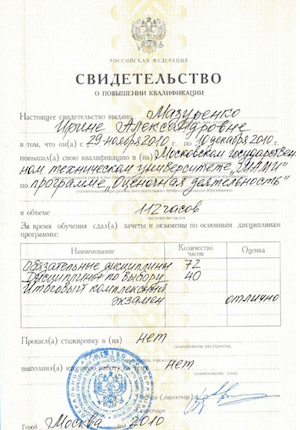 РОССИЙСКАЯ ФЕДЕРАЦИЯ
СВИДЕТЕЛЬСТВО
О ПОВЫШЕНИИ КВАЛИФИКАЦИИ
Настоящее свидетельство выдано Мазуренко
Ирине Александровне
в том, что он(а) с 29 ноября 2010 г. по 10 декабря 2010 г.
повысил(а) свою квалификацию в (на) Московском государствен-
ном техническом университете „МАМИ"
по программе „Оценочная деятельность"
в объеме 112 часов
За время обучения сдал(а) зачеты и экзамены по основным дисциплинам
программы:
Наименование Количество часов Оценка
Обязательные дисциплины 72
Дисциплины по выбору 40
Итоговый комплексный
экзамен отлично
Прошел(а) стажировку в (на) нет
выполнил(а) итоговую работу на тему нет
Город Москва 2010